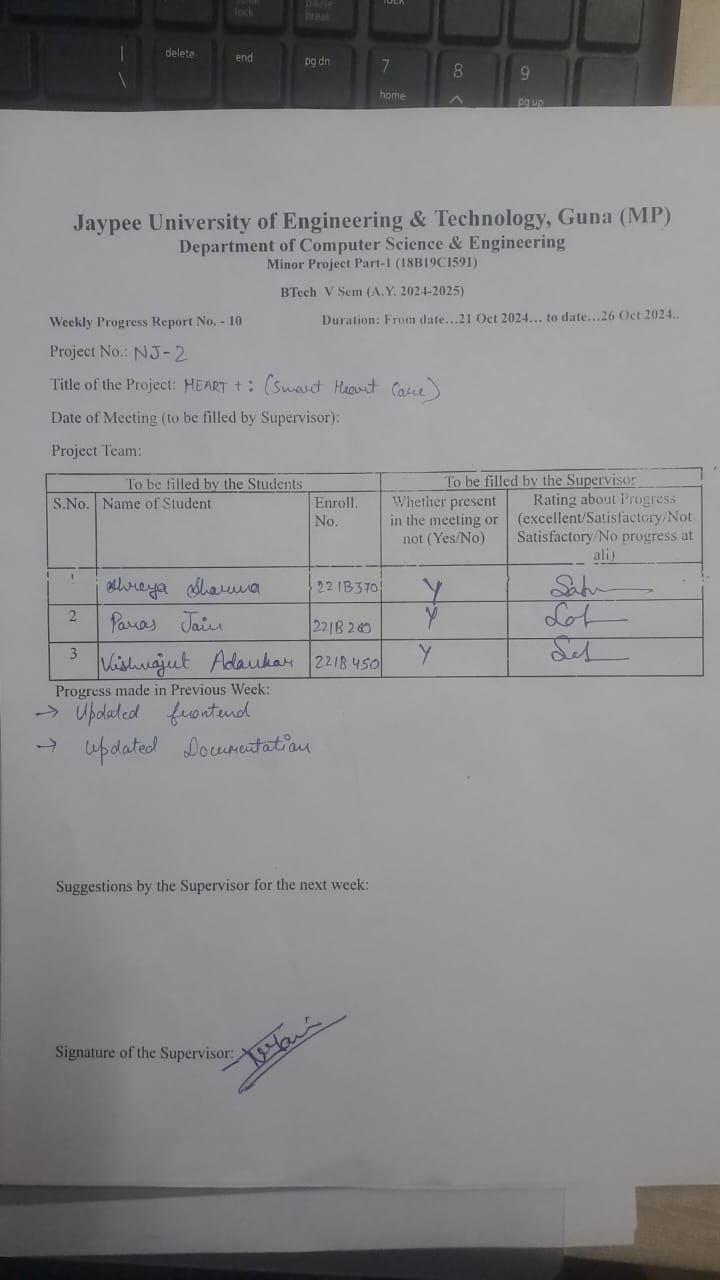 lock
pause
break
lock
delete
end
pg dn
7
8
9
|
\
home
^
pg up
Jaypee University of Engineering & Technology, Guna (MP)
Department of Computer Science & Engineering
Minor Project Part-1 (18B19CI591)
BTech V Sem (A.Y. 2024-2025)
Weekly Progress Report No. - 10 Duration: From date...21 Oct 2024... to date...26 Oct 2024..
Project No.: NJ-2
Title of the Project: HEART +: (Smart Heart Care)
Date of Meeting (to be filled by Supervisor):
Project Team:
To be filled by the Students To be filled by the Supervisor
S.No. Name of Student Enroll. Whether present Rating about Progress
No. in the meeting or (excellent/Satisfactory/Not
not (Yes/No) Satisfactory/No progress at
all)
Shreya Sharma 221B370 Y
2 Paras Jain 221B Y
3 Vishwajeet 221B450 Y
Progress made in Previous Week:
→ Updated frontend
→ Updated Documentation
Suggestions by the Supervisor for the next week:
Signature of the Supervisor: